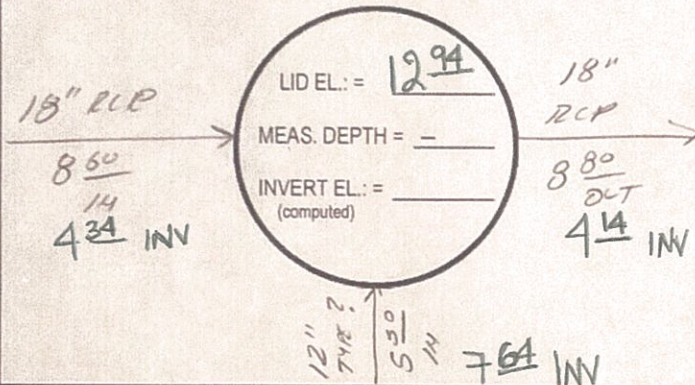 18" RCP
8 60
IN
4 34 INV
LID EL.: = 12 94
MEAS. DEPTH = –
INVERT EL.: =
(computed)
18"
RCP
8 80
OUT
4 14 INV
12"
TYPE ?
5 30
IN
7 64 INV